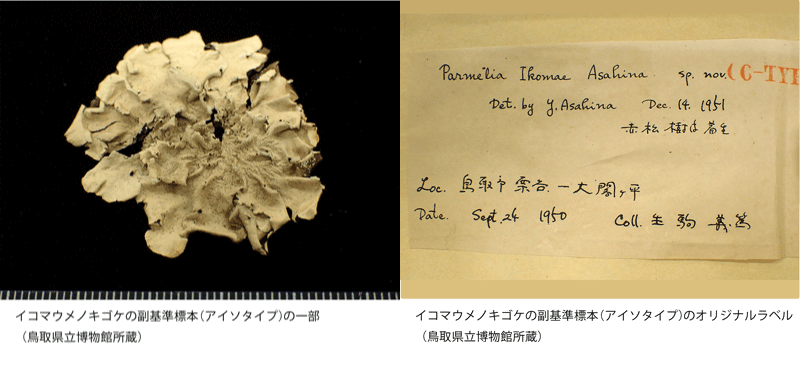 Parmelia Ikomae Asahina sp. nov.
(C-TYP
Det. by Y. Asahina Dec. 14. 1951
赤松樹皮着生
Loc. 鳥取市栗谷一太閤ヶ平
Date. Sept. 24 1950 Coll. 生駒義篤
イコマウメノキゴケの副基準標本(アイソタイプ)の一部
(鳥取県立博物館所蔵)
イコマウメノキゴケの副基準標本(アイソタイプ)のオリジナルラベル
(鳥取県立博物館所蔵)